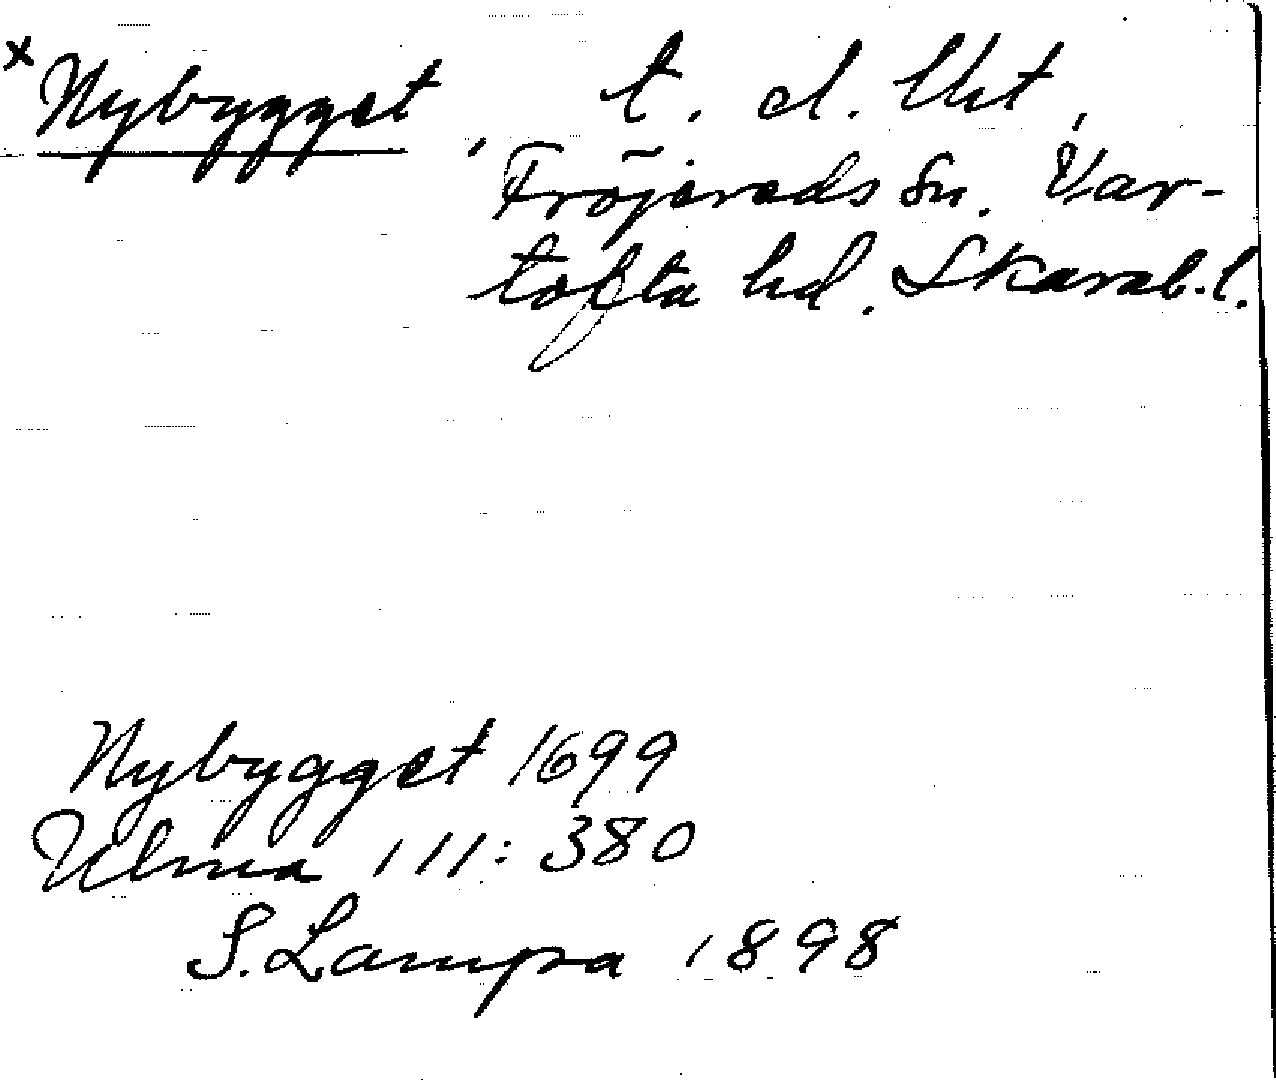 x Nybygget, t. d. Utt,
Fröjereds sn. Var-
tofta hd. Skarab.l.
Nybygget 1699
Ulma 111:380
S. Lampa 1898